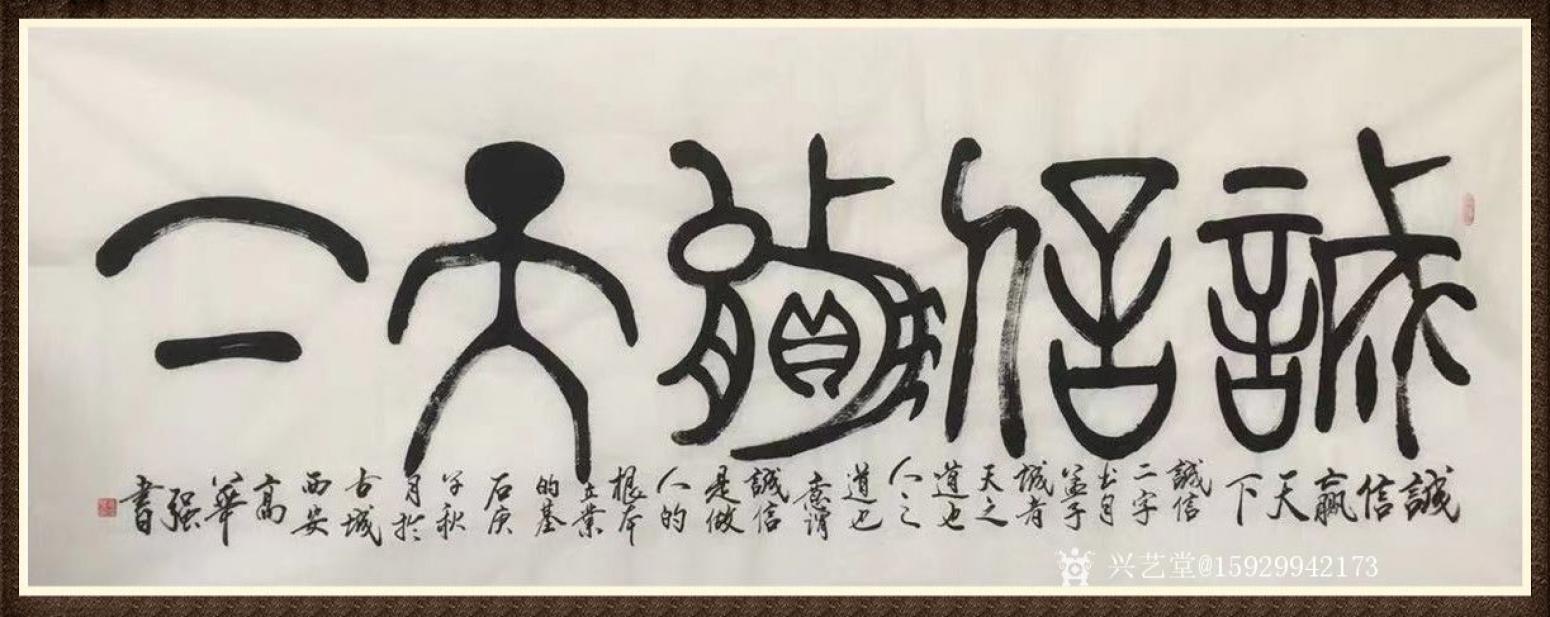 誠信贏天下
誠信贏天下
誠信
二字
出自
孟子
誠者
天之
道也
人之
道也
意謂
誠信
是做
人的
根本
立業
的基
石庚
子秋
月於
古城
西安
高華强書
兴艺堂@15929942173